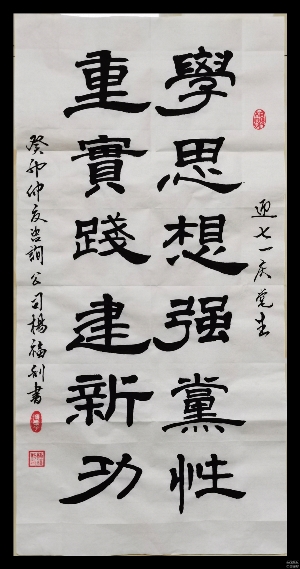 迎七一庆党生
學思想强黨性
重實踐建新功
癸卯仲夏咨詢公司楊福利書